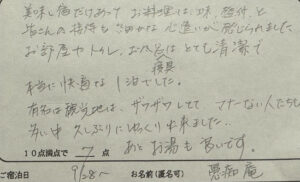 美味し宿だけあって お料理は、味、盛付、と
皆さんの接待も 細かな 心遣いが 感じられました
お部屋やトイレ、お風呂は とても 清潔で
寝具
本当に快適な 1泊でした。
有名な観光地は、ザワザワしてて、マナーない人たちも
多い中 久しぶりに ゆっくり出来ました..
10点満点で 7 点 あと お湯も 旨いです。
ご宿泊日 9/28~ お名前(匿名可) 悪痴庵